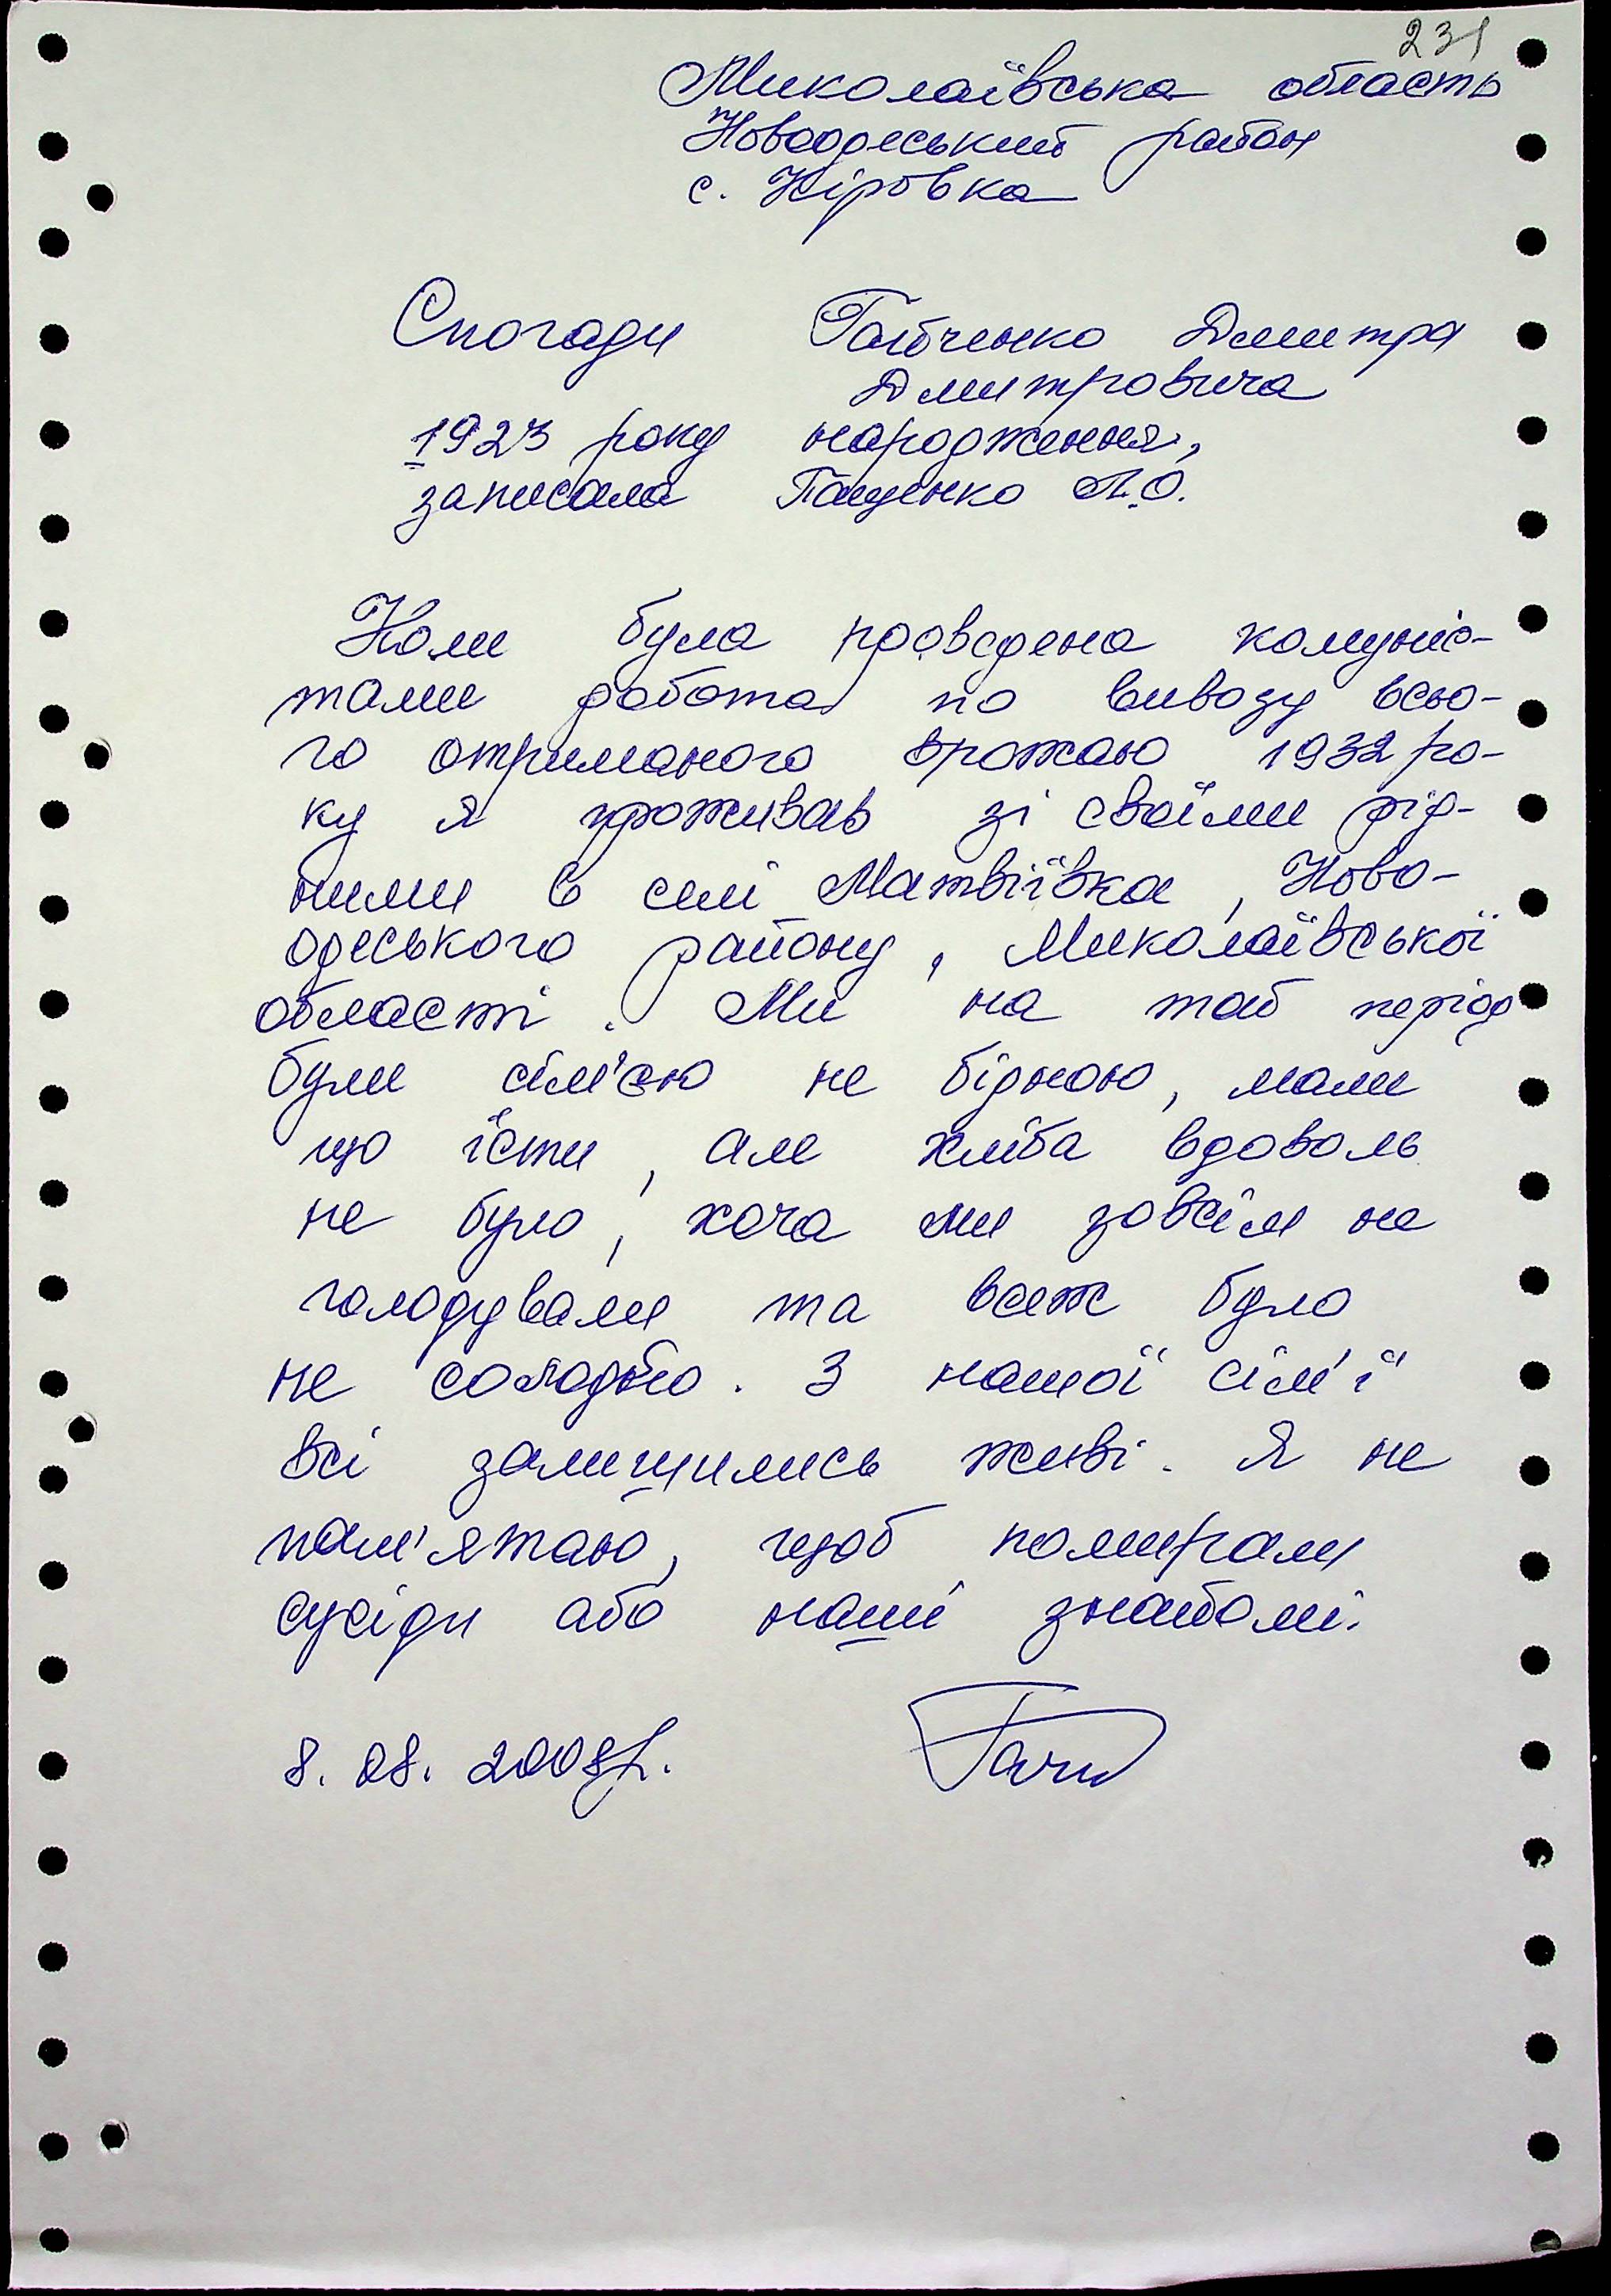 231
Миколаївська область
Новоодеський район
с. Кіровка
Спогади Гайченко Дмитра
Дмитровича
1923 року народження,
записала Пащенко Л.О.
Коли була проведена комуніс-
тами робота по вивозу всьо-
го отриманого врожаю 1932 ро-
ку я проживав зі своїми рід-
ними в селі Матвіївка, Ново-
одеського району, Миколаївської
області. Ми на той період
були сім'єю не бідною, мали
що їсти, але хліба вдоволь
не було, хоча ми зовсім не
голодували та всеж було
не солодко. З нашої сім'ї
всі залишились живі. Я не
пам'ятаю, щоб помирали
сусіди або наші знайомі.
8. 08. 2008р.